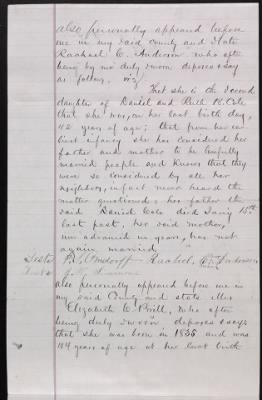 also personally appeared before
me in my said County and State
Rachael C. Anderson who after
being by me duly sworn deposes & say
as follows, viz/
That she is the second
daughter of Daniel and Ruth H. Cole
that she was, on her last birth day,
42 years of age; that from her ear
liest infancy she has considered her
father and mother to be lawfully
married people and knows that they
were so considered by all her
neighbors, in fact never heard the
matter questioned; her father the
said Daniel Cole died Jan'y 15th
last past, her said mother,
now advanced in years, has not
again married,
Teste Rachael C. Anderson
Teste
also personally appeared before me in
my said County and state Mrs
Elizabeth C. Brill, who after
being duly sworn deposes & says
that she was born in 1835 and was
years of age at her last birth